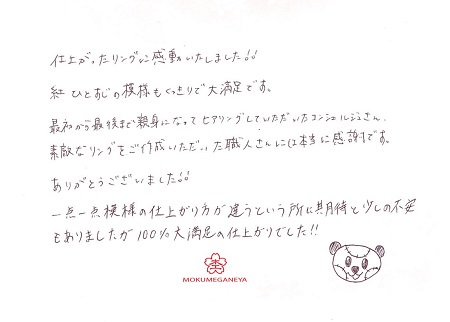 仕上がったリングに感動いたしました!!
紅ひとすじの模様もくっきりで大満足です。
最初から最後まで親身になってヒアリングしていただいたコンシェルジュさん、
素敵なリングをご作成いただいた職人さんには本当に感謝です。
ありがとうございました!!
一点一点模様の仕上がり方が違うという所に期待と少しの不安
もありましたが100%大満足の仕上がりでした!!
MOKUMEGANEYA